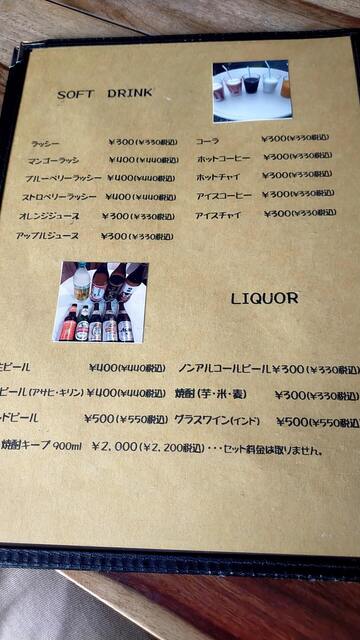 SOFT DRINK
ラッシー ¥300(¥330税込)
マンゴーラッシ ¥400(¥440税込)
ブルーベリーラッシー ¥400(¥440税込)
ストロベリーラッシー ¥400(¥440税込)
オレンジジュース ¥300(¥330税込)
アップルジュース ¥300(¥330税込)
コーラ ¥300(¥330税込)
ホットコーヒー ¥300(¥330税込)
ホットチャイ ¥300(¥330税込)
アイスコーヒー ¥300(¥330税込)
アイスチャイ ¥300(¥330税込)
LIQUOR
ビール ¥400(¥440税込) ノンアルコールビール ¥300(¥330税込)
ビール(アサヒ・キリン) ¥400(¥440税込) 焼酎(芋・米・麦) ¥300(¥330税込)
ドビール ¥500(¥550税込) グラスワイン(インド) ¥500(¥550税込)
焼酎キープ 900ml ¥2,000(¥2,200税込)・・・セット料金は取りません。